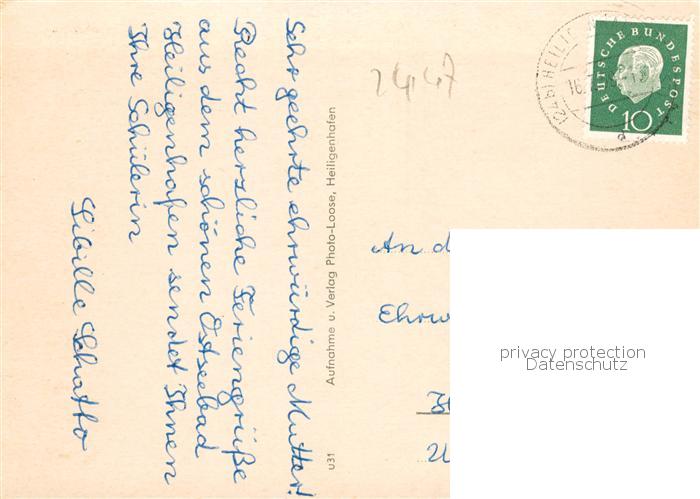 Sehr geehrte ehrwürdige Mutter!
Recht herzliche Feriengrüße
aus dem schönen Ostseebad
Heiligenhafen sendet Ihnen
Ihre Schülerin
Sibille Schatto
Aufnahme u. Verlag Photo-Loose, Heiligenhafen
U31
24147
(24b) HEILIG
16.
DEUTSCHE BUNDESPOST
10
An d
Ehrw
privacy protection
Datenschutz